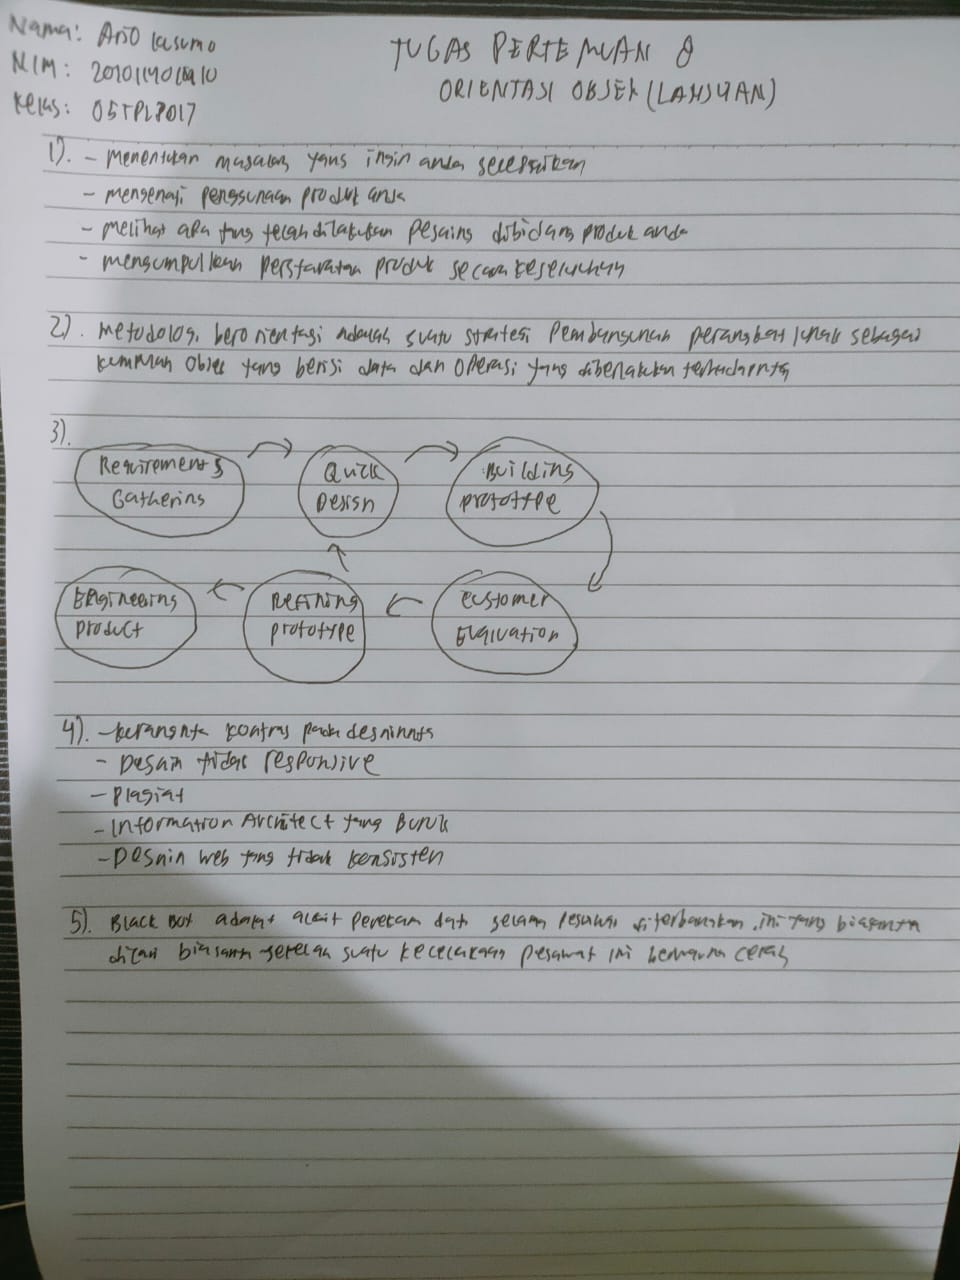 Nama: Ario Kusumo
NIM:
Kelas: 05TPLP017
TUGAS PERTEMUAN 8
ORIENTASI OBJEK (LANJUTAN)
1). - Menentukan masalah yang ingin anda selesaikan
- mengenali penggunaan produk anda
- melihat apa yang telah dilakukan pesaing dibidang produk anda
- mengumpulkan persyaratan produk secara keseluruhan
2). Metodologi berorientasi adalah suatu strategi pembangunan perangkat lunak sebagai
kumpulan objek yang berisi data dan operasi yang diberlakukan terhadapnya
3).
Requirements
Gathering
Quick
Design
Building
prototype
Customer
Evaluation
Refining
prototype
Engineering
product
4). - kurangnya kontras pada desainnya
- Desain tidak responsive
- Plagiat
- Information Architect yang Buruk
- Desain web yang tidak konsisten
5). Black Box adalah alat perekam data selama pesawat diterbangkan. ini yang biasanya
dicari biasanya setelah suatu kecelakaan pesawat ini berwarna cerah